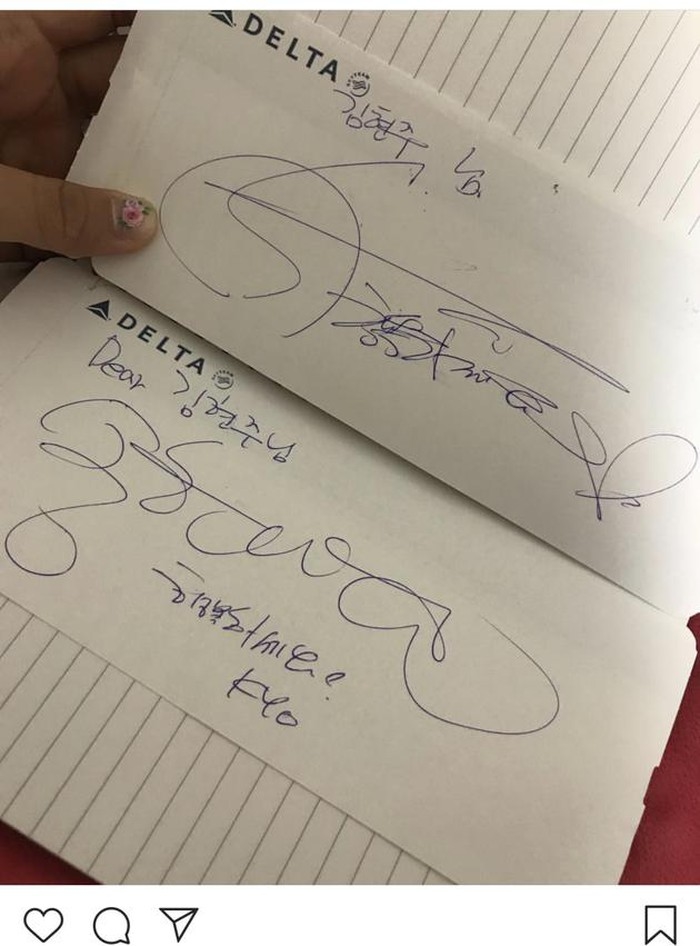 DELTA
김현주 님.
행복하세요
DELTA
Dear 김현주님
행복하세요!
KYO